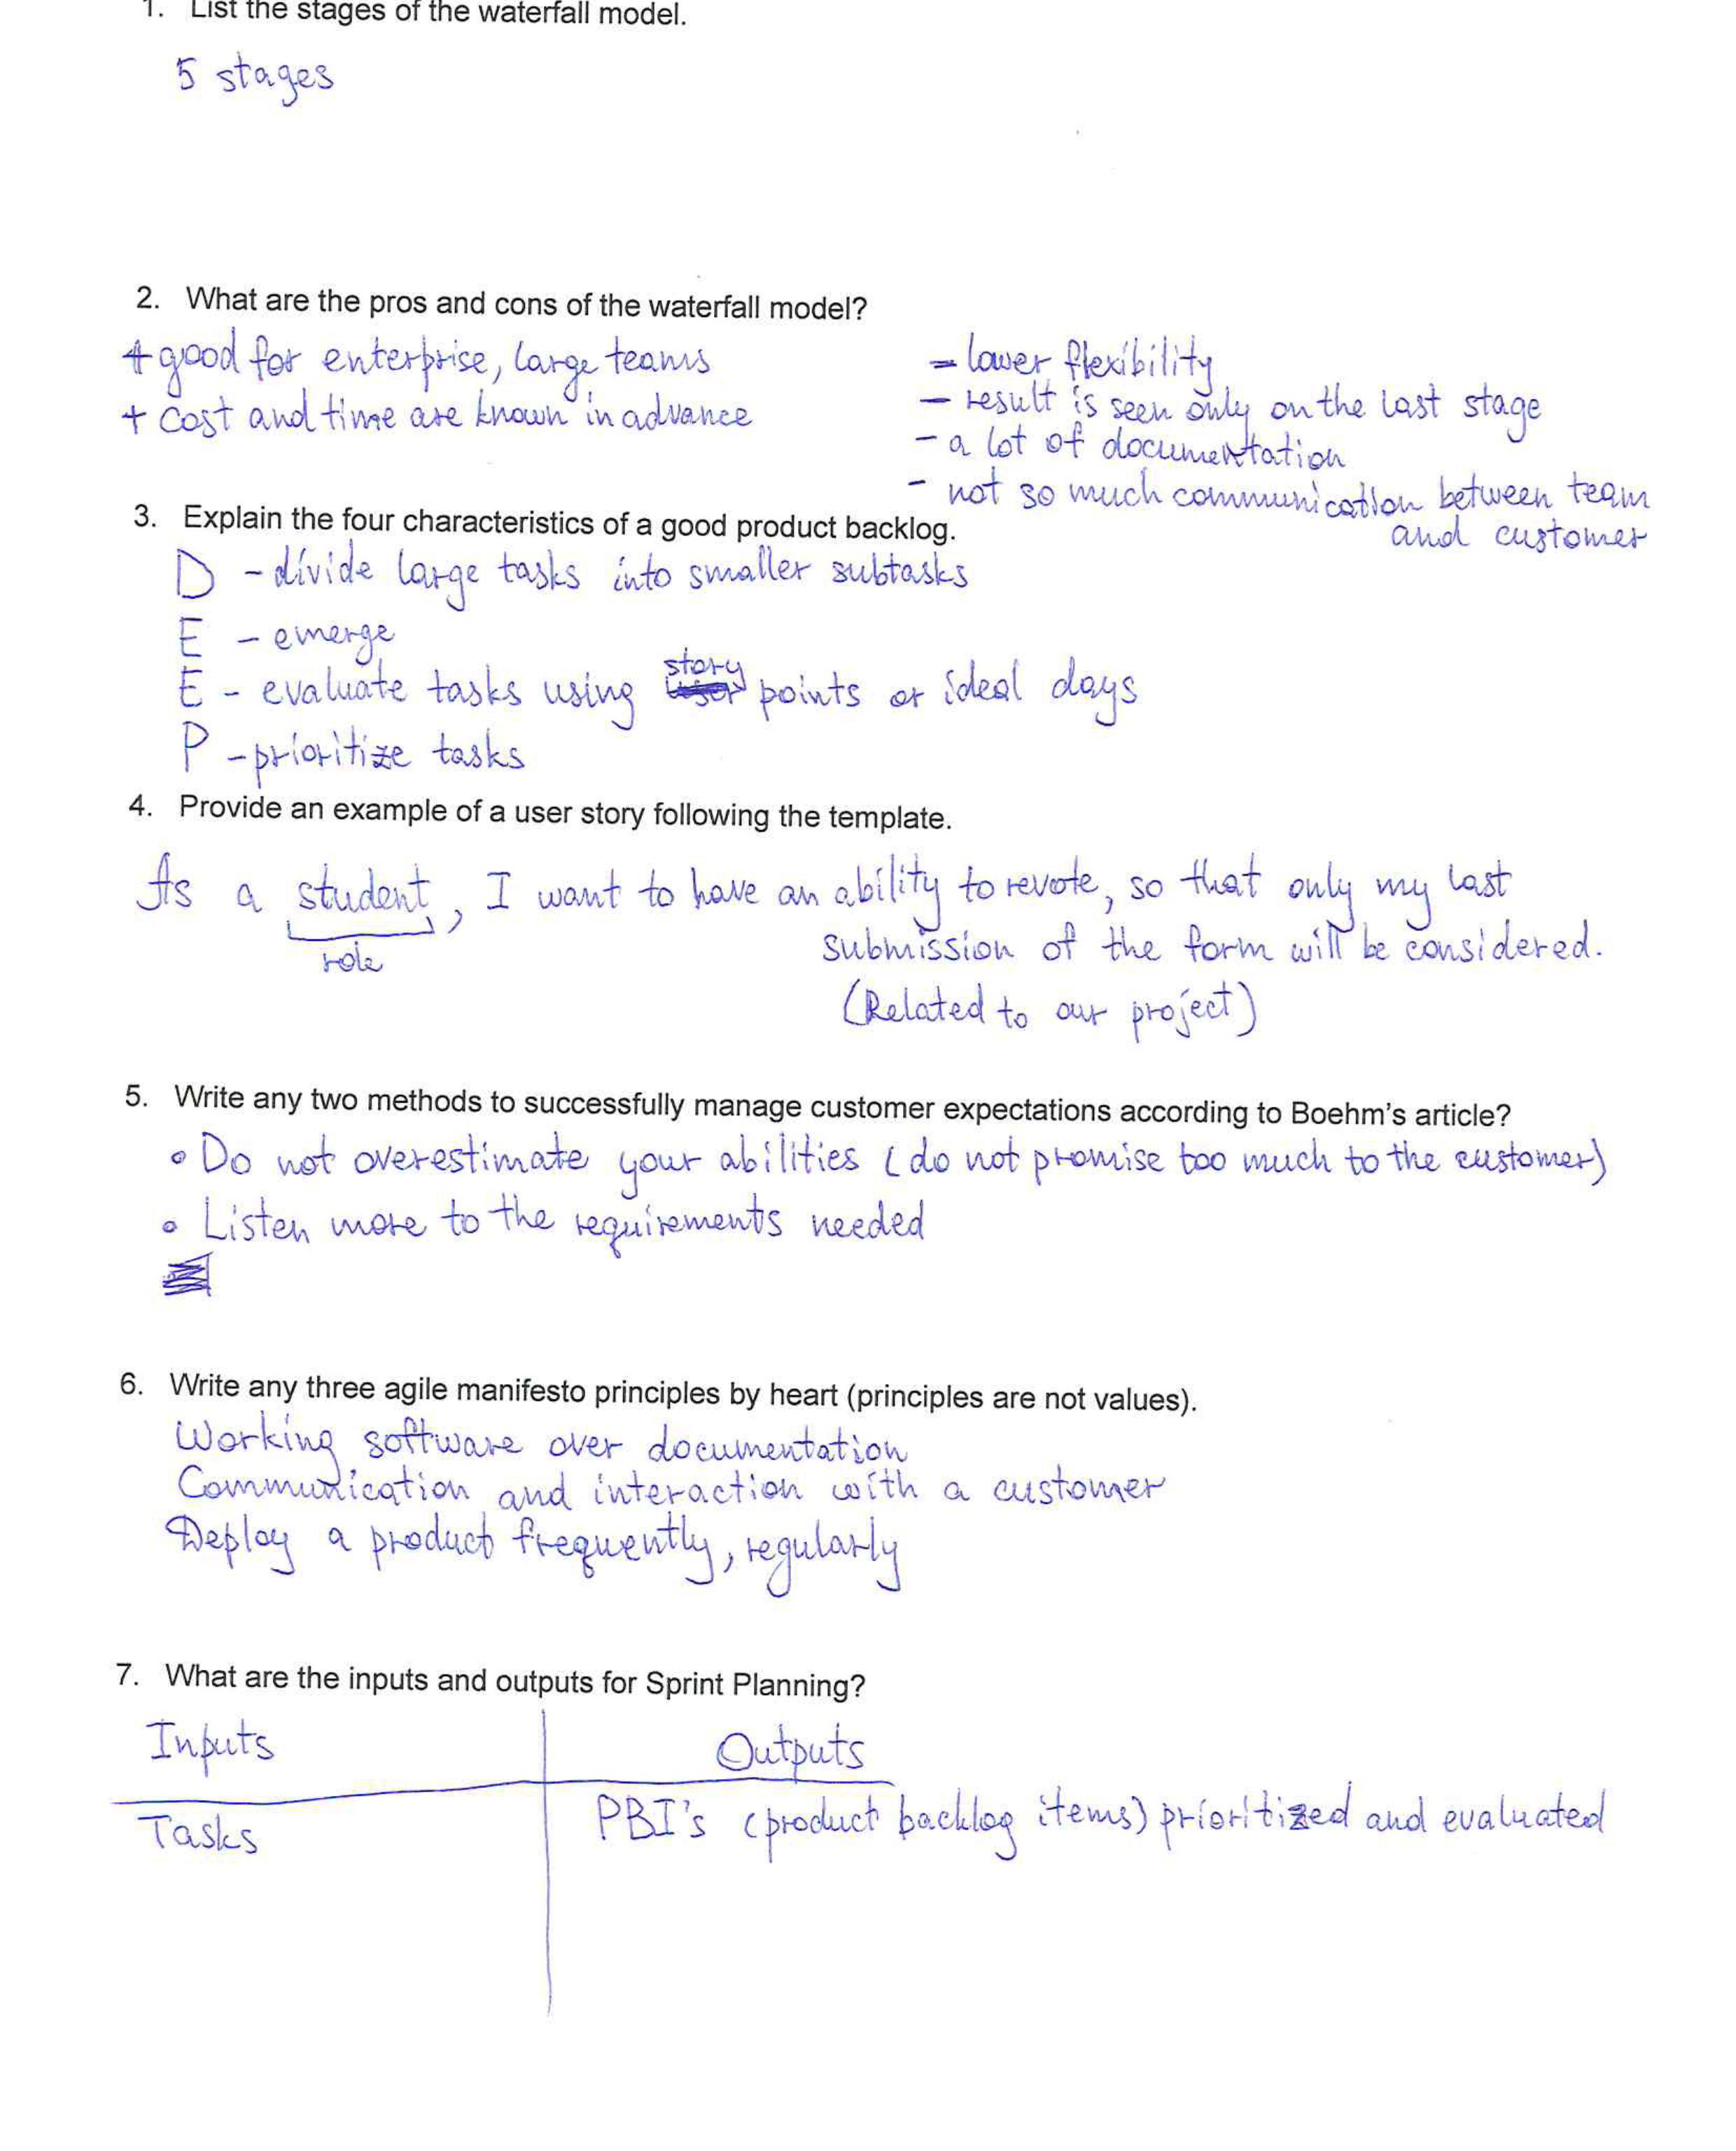 1. List the stages of the waterfall model.
5 stages
2. What are the pros and cons of the waterfall model?
+ good for enterprise, large teams
+ cost and time are known in advance
- lower flexibility
- result is seen only on the last stage
- a lot of documentation
- not so much communication between team
and customer
3. Explain the four characteristics of a good product backlog.
D - divide large tasks into smaller subtasks
E - emerge
E - evaluate tasks using story points or ideal days
P - prioritize tasks
4. Provide an example of a user story following the template.
As a student, I want to have an ability to revote, so that only my last
role
submission of the form will be considered.
(Related to our project)
5. Write any two methods to successfully manage customer expectations according to Boehm's article?
• Do not overestimate your abilities (do not promise too much to the customer)
• Listen more to the requirements needed
6. Write any three agile manifesto principles by heart (principles are not values).
Working software over documentation
Communication and interaction with a customer
Deploy a product frequently, regularly
7. What are the inputs and outputs for Sprint Planning?
Inputs
Outputs
Tasks
PBI's (product backlog items) prioritized and evaluated